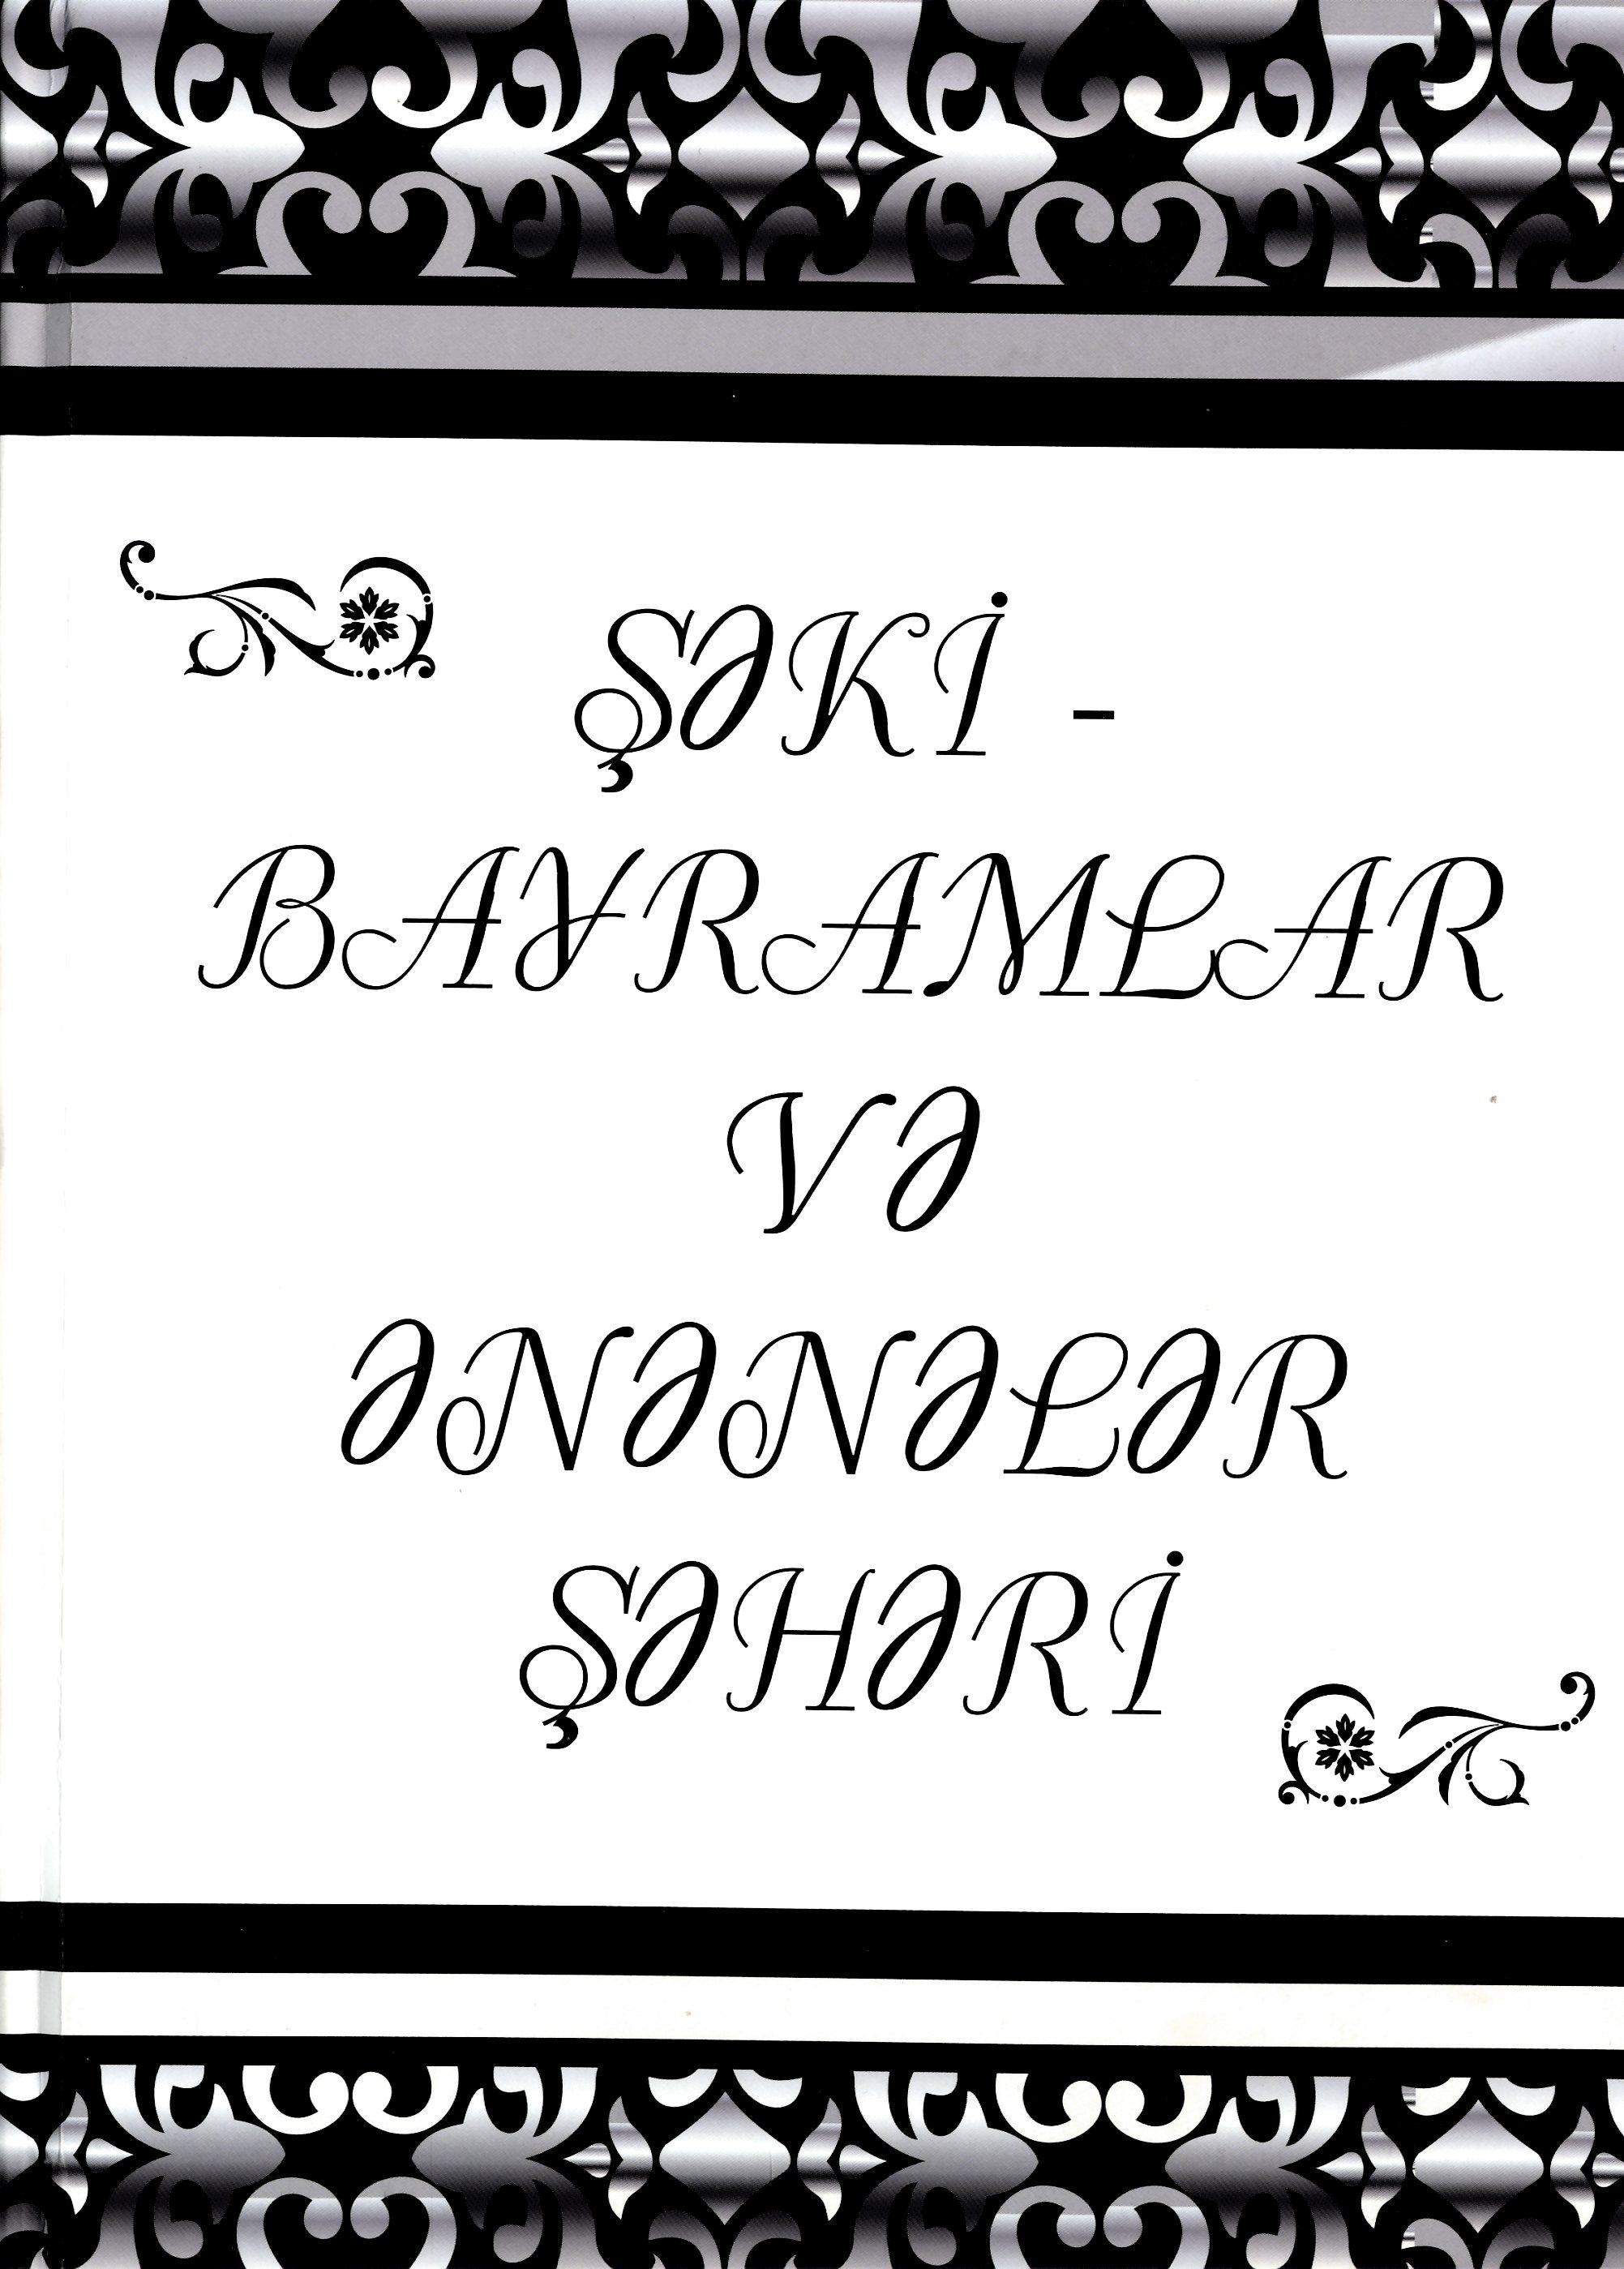 ŞƏKİ -
BAYRAMLAR
VƏ
ƏNƏNƏLƏR
ŞƏHƏRİ